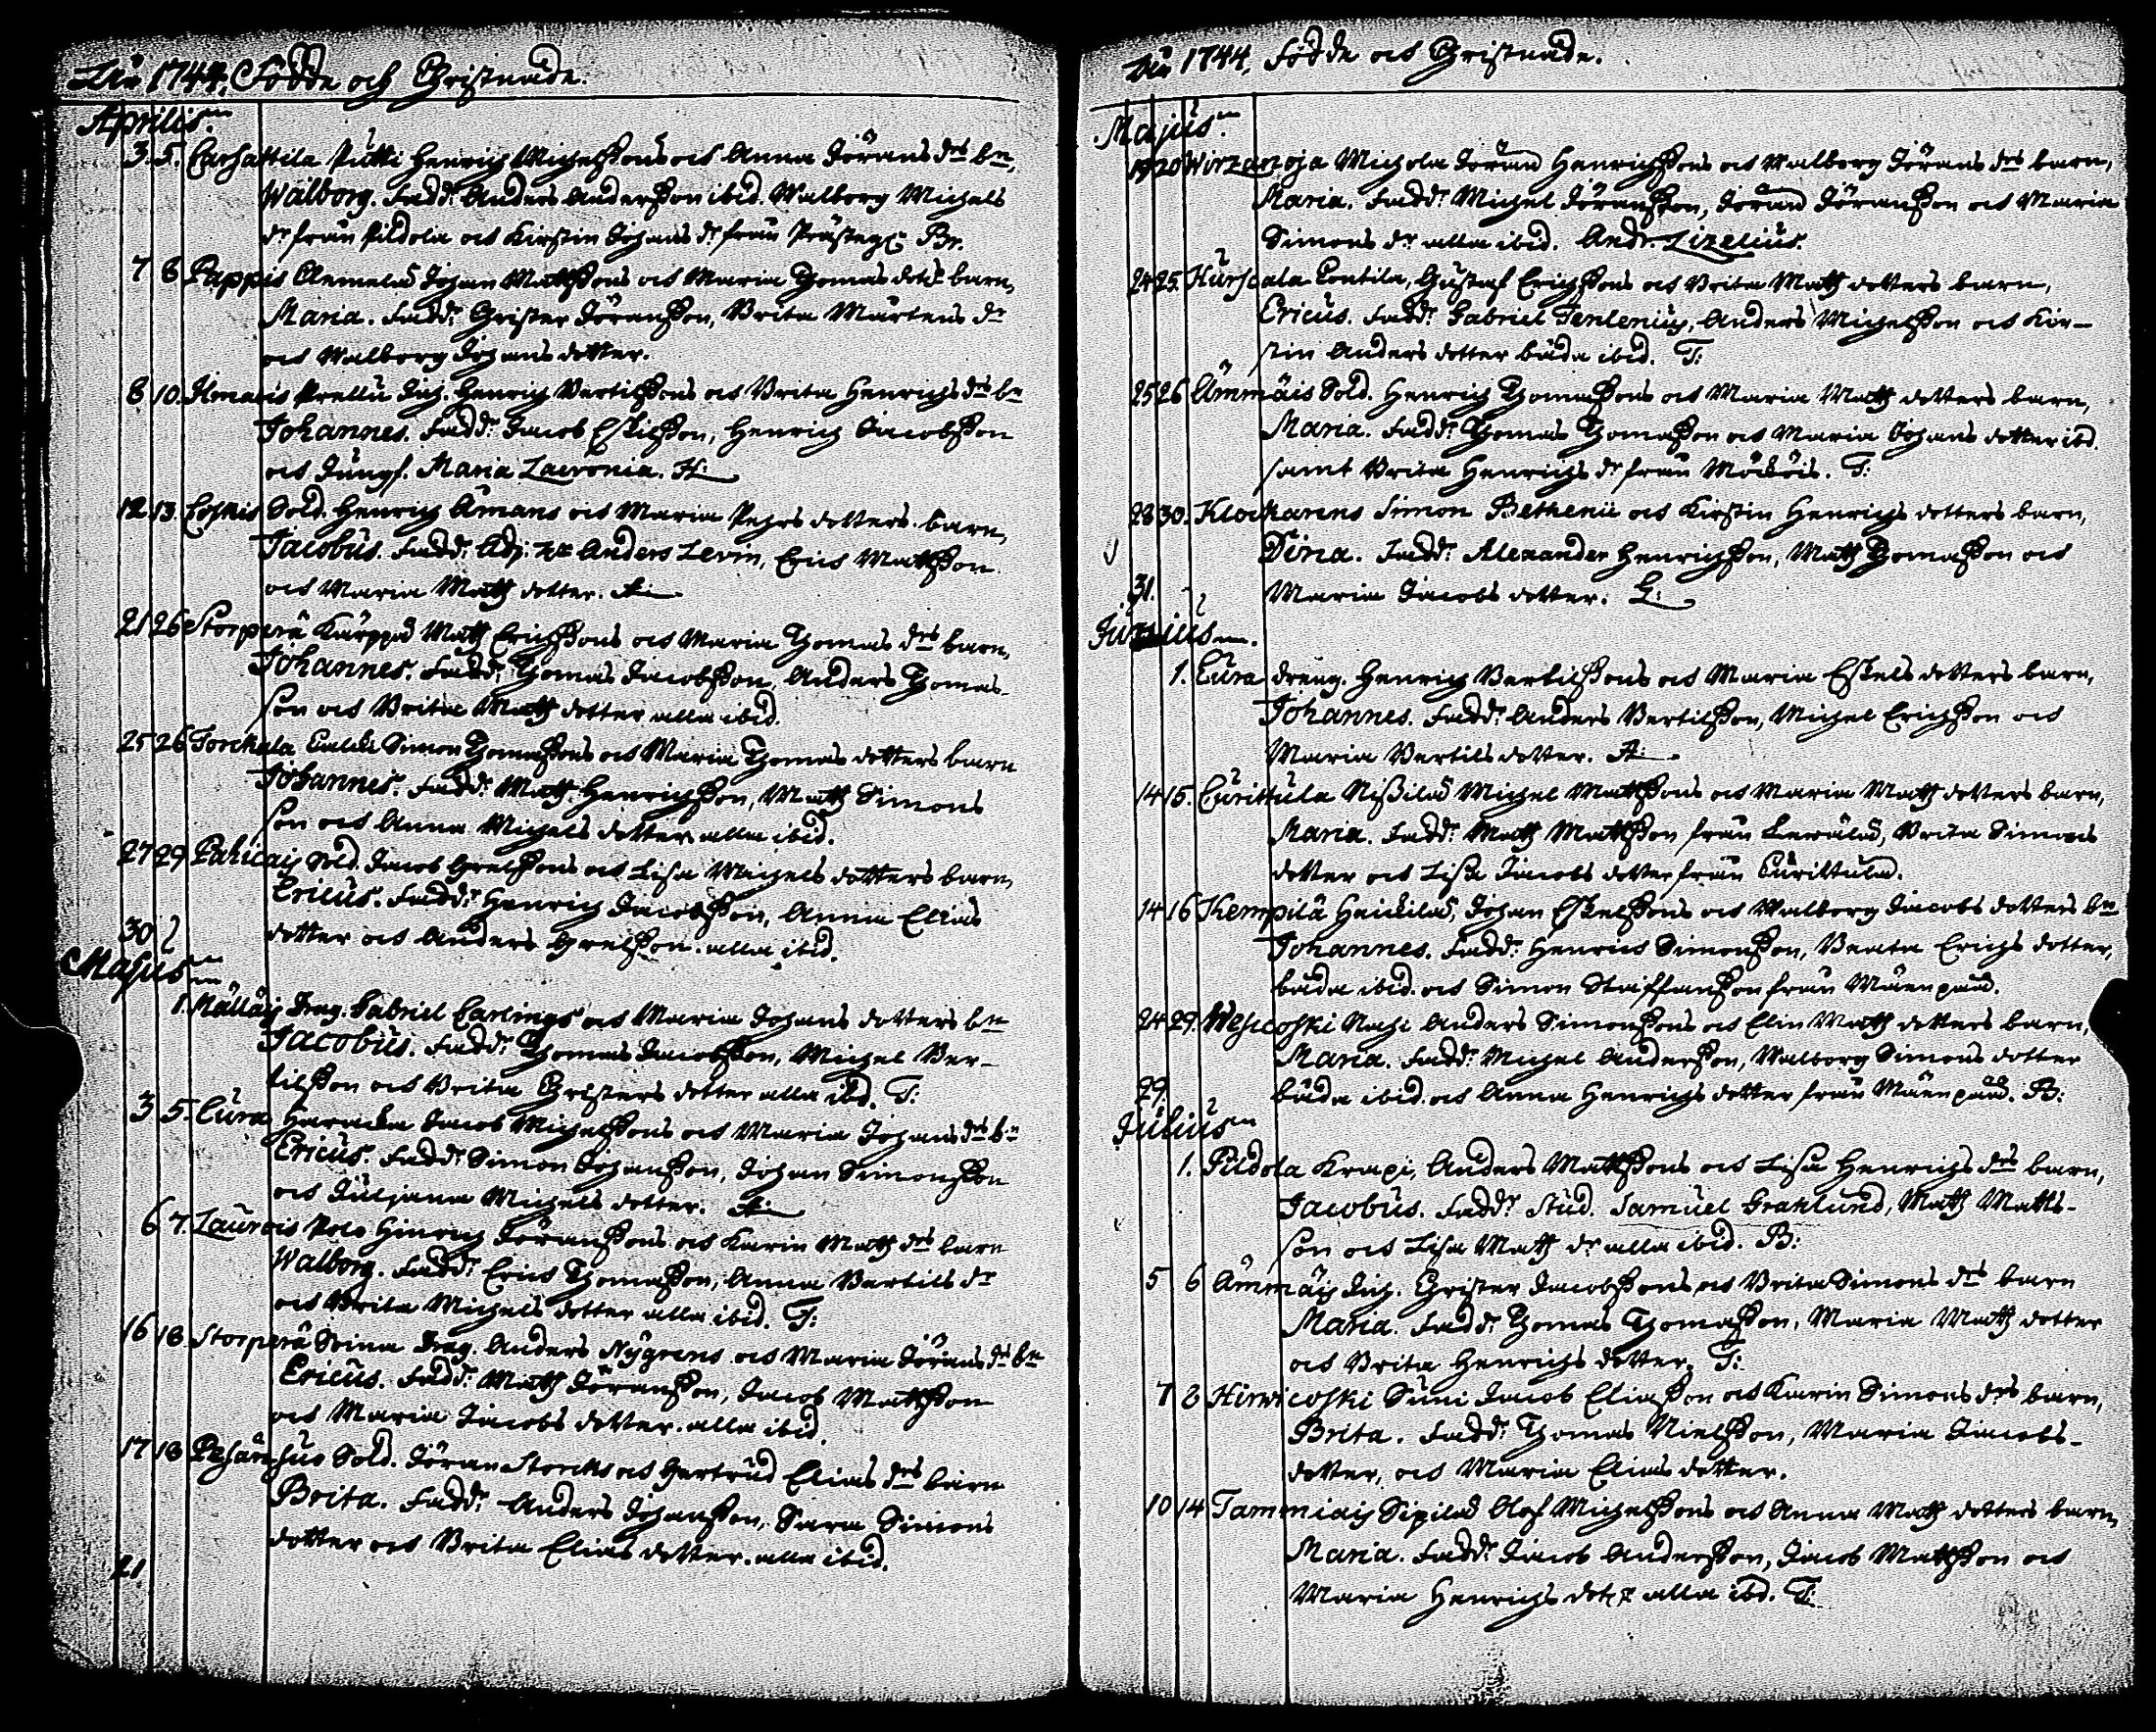 Åhr 1744. Födde och Christnade.
Aprilis
3. 5. Carhattila Putti Henrich Michelssons och Anna Jörans drs bn,
Walborg. Fadd: Anders Andersson ibid. Walborg Michels
dr från Pildola och Kirstin Johans dr från Prästeg: Br.
7 8 Pappis Clemelä Johan Mattssons och Maria Thomas dotrs barn,
Maria. Fadd: Christer Jöransson, Brita Mårtens dr
och Walborg Johans dotter.
8 10. Ilmaris Prellu Henrich Bertilssons och Brita Henrichs drs bn
Johannes. Fadd: Jacob Eskilsson, Henrich Jacobsson
och Jungf. Maria Laeronia. H:
12. 13. Coskis Sold. Henrich Åmans och Maria Pehrs dotters barn,
Jacobus. Fadd: Adj. Hr Anders Levin, Eric Mattsson
och Maria Matts dotter. A:
21 26 Storperä Kärppä Matts Erichssons och Maria Thomas drs barn,
Johannes. Fadd: Thomas Jacobsson, Anders Thomas-
son och Brita Matts dotter alla ibid.
25 26 Torckala Simon Thomassons och Maria Thomas dotters barn
Johannes. Fadd: Matts Henrichsson, Matts Simons
son och Anna Michels dotter alla ibid.
27 29 Pahicais Sold. Jacob Grelssons och Lisa Michels dotters barn,
Ericus. Fadd: Henrich Jacobsson, Anna Elias
30 dotter och Anders Grelsson. alla ibid.
Majus
1. Källäis Drag. Gabriel Carlings och Maria Johans dotters bn
Jacobus. Fadd: Thomas Jacobsson, Michel Ber-
tilsson och Brita Christers dotter alla ibd. T:
3. 5. Cura Haracka Jacob Michelssons och Maria Johans drs bn
Ericus. Fadd: Simon Johansson, Johan Simonsson
och Juljana Michels dotter. A:
6 7. Laurois Poco Hinrich Jöranssons och Karin Matts drs barn
Walborg. Fadd: Eric Thomasson, Anna Bertils dr
och Brita Michels dotter alla ibid. T:
16 18. Storperä Soina Drag. Anders Nygrens och Maria Jörans drs bn
Ericus. Fadd: Matts Jöransson, Jacob Mattsson
och Maria Jacobs dotter. alla ibid.
17 18 Sold. Jöran Storcks och Gertrud Elias drs barn
Brita. Fadd: Anders Johansson, Sara Simons
dotter och Brita Elias dotter. alla ibid.
21
Åhr 1744. Födde och Christnade.
Majus
19 20 Wirzanoja Michola Jöran Henrichssons och Walborg Jörans drs barn,
Maria. Fadd: Michel Jöransson, Jöran Jöransson och Maria
Simons dr alla ibid. Andr. Lizelius.
24 25. Hurscala Pentila, Gustaf Erichssons och Brita Matts dotters barn,
Ericus. Fadd: Gabriel Tenlenius, Anders Michelsson och Kir-
stin Anders dotter båda ibid. T:
25 26 Ämmäis Sold. Henrich Thomassons och Maria Matts dotters barn,
Maria. Fadd: Thomas Thomasson och Maria Johans dotter ibd.
samt Brita Henrichs dr från Mäcköis. T:
28 30. Klockarens Simon Bethenii och Kirstin Henrichs dotters barn,
Dina. Fadd: Alexander Henrichsson, Matts Thomasson och
31. Maria Jacobs dotter. L:
Junius
1. Cura dreng. Henrich Bertilssons och Maria Eskels dotters barn,
Johannes. Fadd: Anders Bertilsson, Michel Erichsson och
Maria Bertils dotter. A:
14 15. Curittula Nissilä Michel Mattssons och Maria Matts dotters barn,
Maria. Fadd: Matts Mattsson från Leeväla, Brita Simons
dotter och Lisa Jacobs dotter från Curittula.
14 16 Kempilä Heickilä, Johan Eskelssons och Walborg Jacobs dotters bn
Johannes. Fadd: Henric Simonsson, Beata Erichs dotter,
båda ibid. och Simon Staffansson från Mäenpää.
24 29. Wesicoski Nasi Anders Simonssons och Elin Matts dotters barn,
Maria. Fadd: Michel Andersson, Walborg Simons dotter
29. båda ibid. och Anna Henrichs dotter från Mäenpää. B:
Julius
1. Pildola Krapi, Anders Mattssons och Lisa Henrichs drs barn,
Jacobus. Fadd: Stud. Samuel Grahlund, Matts Matts-
son och Lisa Matts dr alla ibid. B:
5 6 Ämmäis Christer Jacobssons och Brita Simons drs barn
Maria. Fadd: Thomas Thomasson, Maria Matts dotter
och Brita Henrichs dotter. T:
7 8 Hirwicoski Suni Jacob Eliasson och Karin Simons drs barn,
Brita. Fadd: Thomas Nielsson, Maria Jacobs-
dotter, och Maria Elias dotter.
10 14 Tammiais Sipilä Olof Michelssons och Anna Matts dotters barn,
Maria. Fadd: Jacob Andersson, Jacob Mattsson och
Maria Henrichs dotr alla ibd. T: